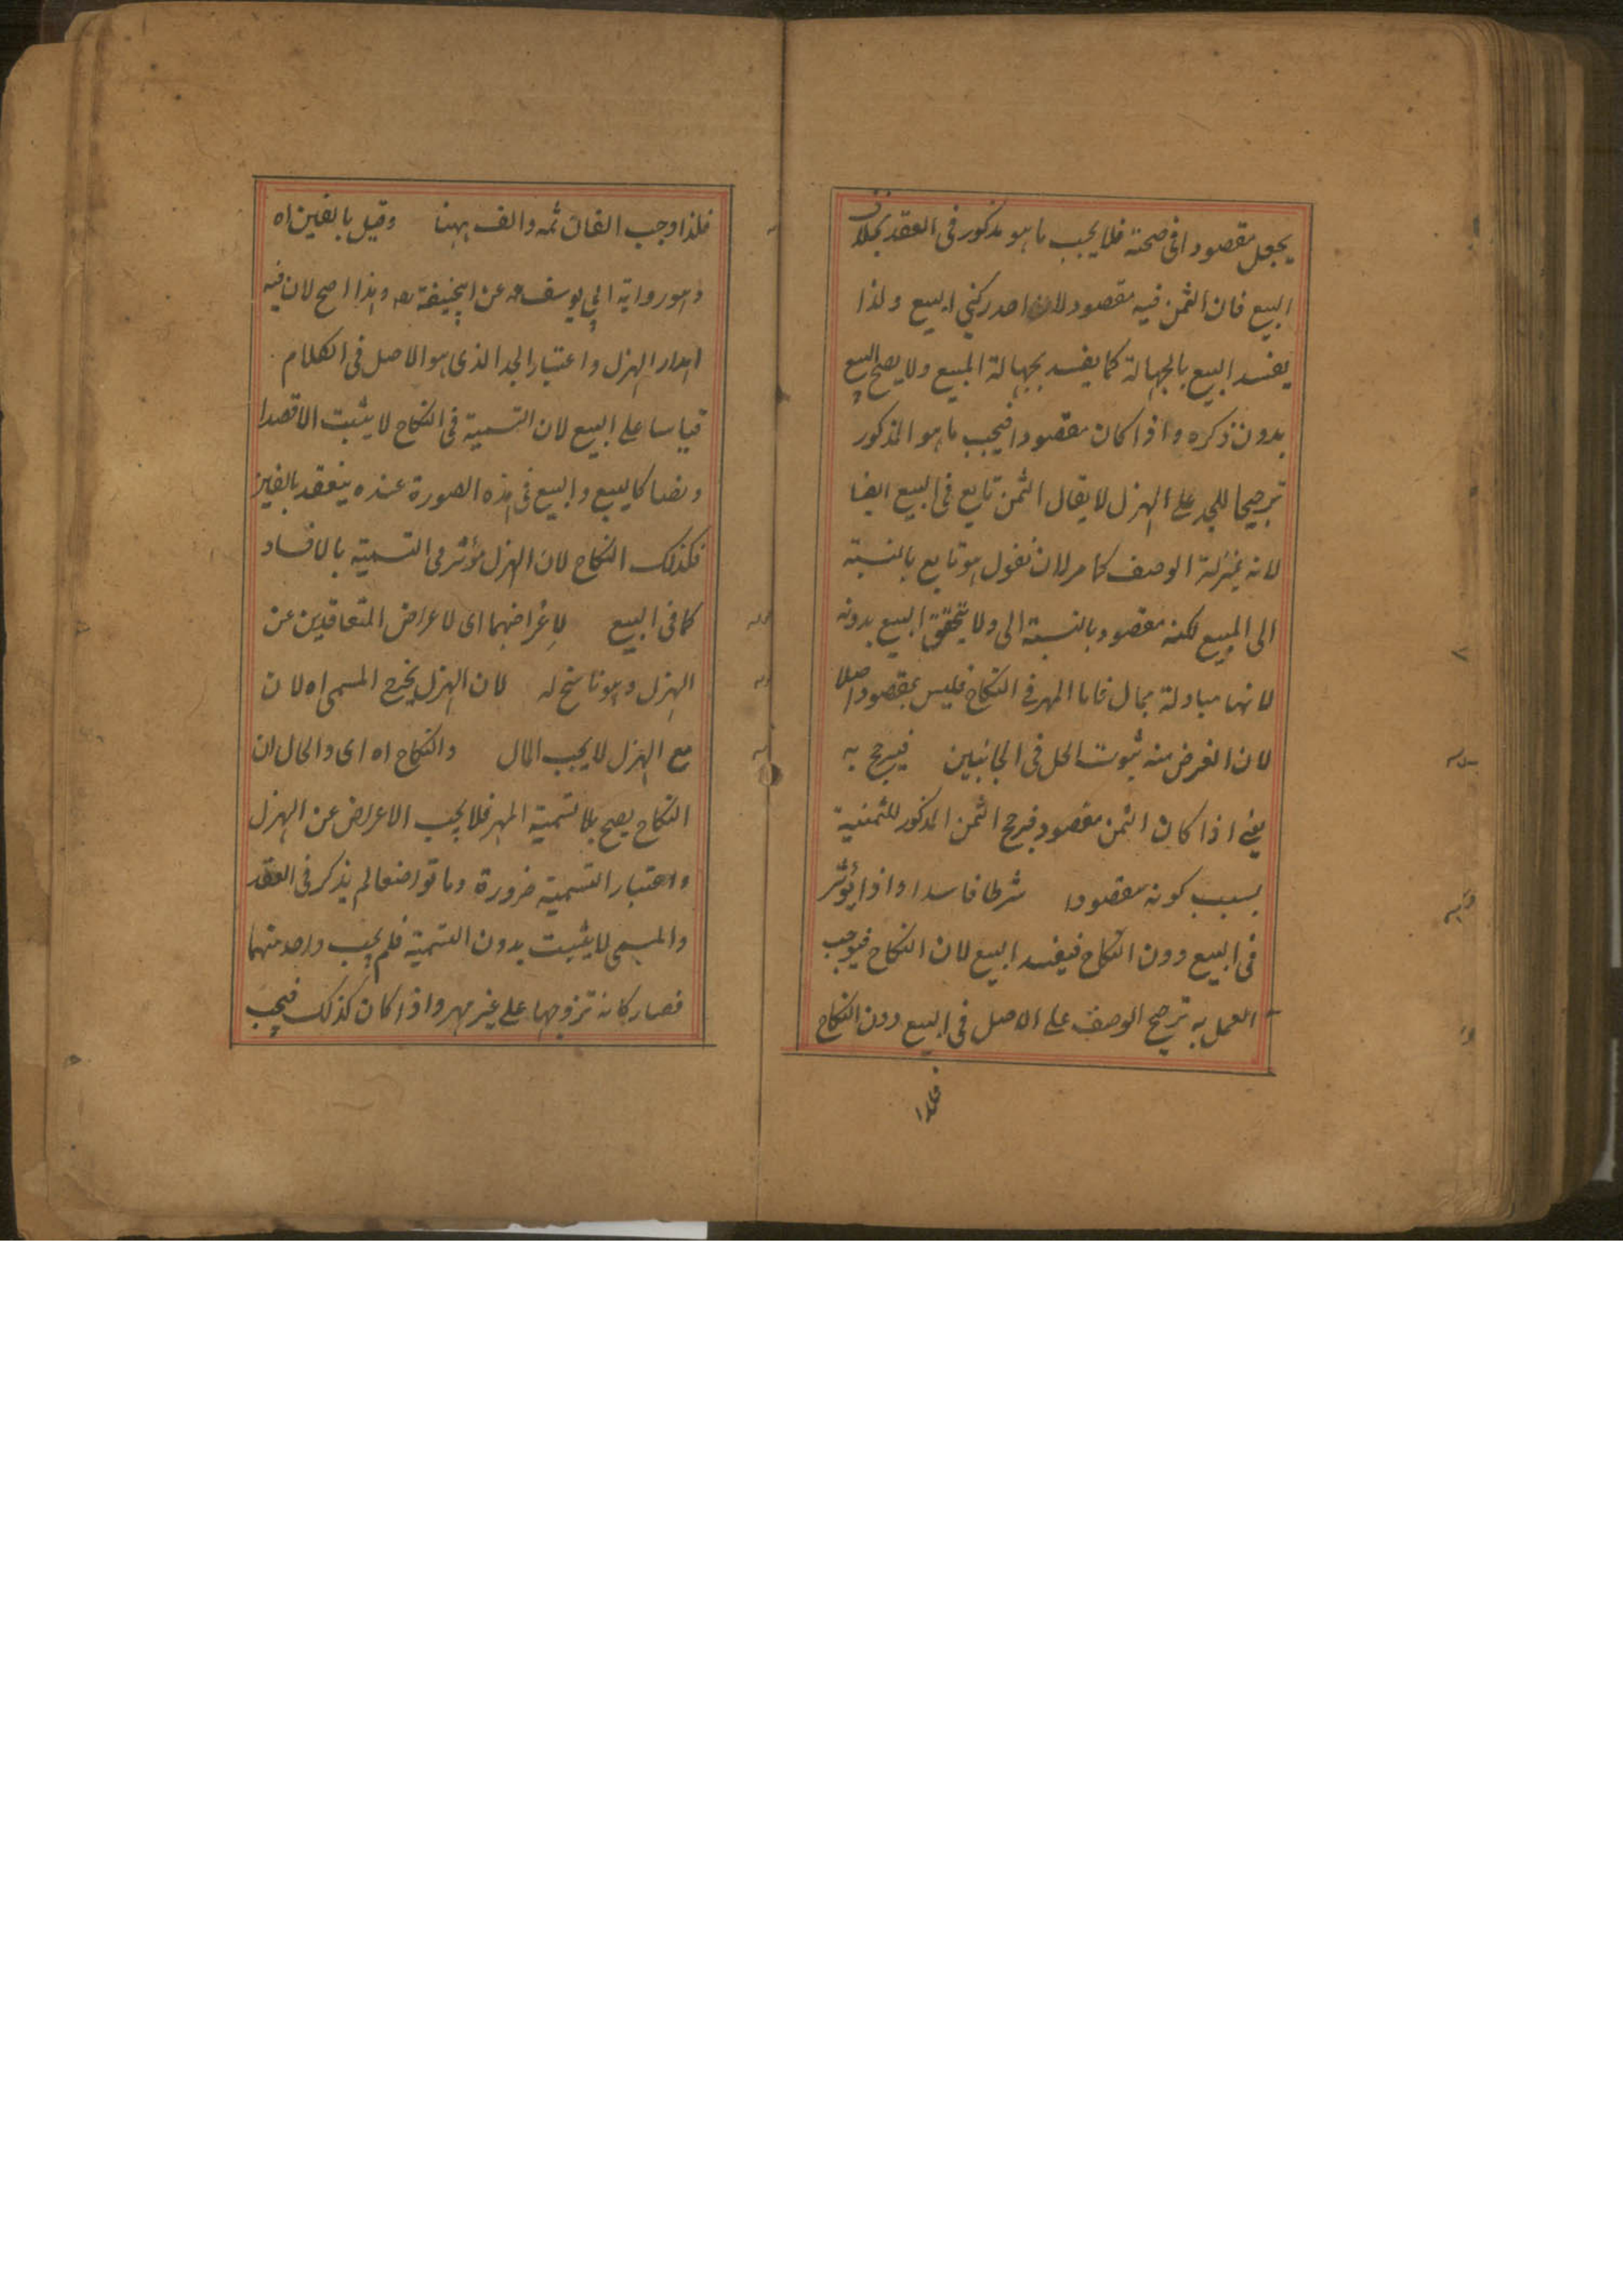 يجعل مقصودا فى صحته فلا يجب ما هو مذكور فى العقد بخلاف
البيع فان الثمن فيه مقصود لانه احد ركنى البيع ولذا
يفسد البيع بالجهالة كما يفسد بجهالة المبيع ولا يصح البيع
بدون ذكره واذا كان مقصودا فيجب ما هو المذكور
ترجيحا للجد على الهزل لا يقال الثمن تابع فى البيع ايضا
لانه بمنزلة الوصف كما مر لان نقول هو تابع بالنسبة
الى المبيع لكنه مقصود بالنسبة الى ولا يتحقق البيع بدونه
لانها مبادلة بمال فاما المهر فى النكاح فليس بمقصود اصلا
لان الغرض منه ثبوت الحل فى الجانبين فيرجح به
يعنى اذا كان الثمن مقصود فيرجح الثمن المذكور للثمنية
بسبب كونه مقصودا شرطا فاسدا واذا يؤثر
فى البيع دون النكاح فيفسد البيع لان النكاح فيوجب
العمل به ترجيح الوصف على الاصل فى البيع دون النكاح
فلذا
فلذا وجب الفان ثمه والف ههنا وقيل بالفين اه
وهو رواية ابى يوسف عن ابيحنيفة وهذا اصح لان فيه
اهدار الهزل واعتبار الجد الذى هو الاصل فى الكلام
قياسا على البيع لان التسمية فى النكاح لا يثبت الا قصدا
ونصا كالبيع والبيع فى هذه الصورة عنده ينعقد بالفين
فكذلك النكاح لان الهزل مؤثر فى التسمية بالافساد
كما فى البيع لاعراضهما اى لاعراض المتعاقدين عن
الهزل وهو ناسخ له لان الهزل يخرج المسمى اه لان
مع الهزل لا يجب المال والنكاح اه اى والحال ان
النكاح يصح بلا تسمية المهر فلا يجب الاعراض عن الهزل
واعتبار التسمية ضرورة وما تواضعا لم يذكر فى العقد
والمسمى لا يثبت بدون التسمية فلم يجب واحد منهما
فصار كانه تزوجها على غير مهر واذا كان كذلك فيجب